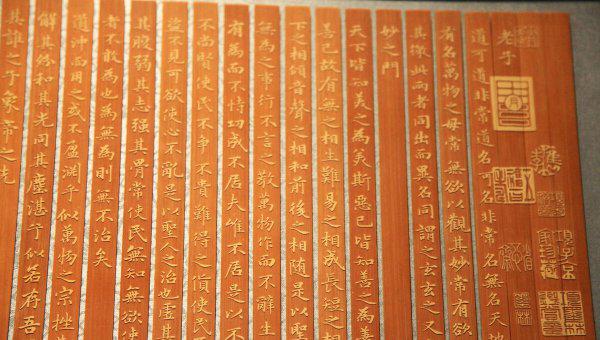 老子
道可道非常道名可名非常名無名天地
有名萬物之母常無欲以觀其妙常有欲
其徼此兩者同出而異名同謂之玄玄之又
妙之門
天下皆知美之為美斯惡已皆知善之為善
善已故有無之相生難易之相成長短之相
下之相傾音聲之相和前後之相隨是以聖
無為之事行不言之教萬物作而不辭生
有為而不恃功成不居夫唯不居是以不
不尚賢使民不爭不貴難得之貨使民不
盜不見可欲使心不亂是以聖人之治也虛其
其腹弱其志强其骨常使民無知無欲使
者不敢為也為無為則無不治矣
道沖而用之或不盈淵乎似萬物之宗挫
解其紛和其光同其塵湛乎似若存吾
其誰之子象帝之先